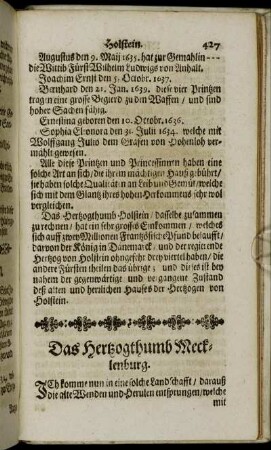 Holstein. 427
Augustus den 9. Maij 1635. hat zur Gemahlin ---
die Wittib Fürst Wilhelm Ludwigs von Anhalt.
Joachim Ernst den 5. Octobr. 1637.
Bernhard den 21. Jan. 1639. diese vier Printzen
tragen eine grosse Begierd zu den Waffen / und sind
hoher Sachen fähig.
Ernestina geboren den 10. Octobr. 1636.
Sophia Eleonora den 31. Julii 1634. welche mit
Wolffgang Julio dem Grafen von Hohenloh ver-
mählt gewesen.
Alle diese Printzen und Princessinnen haben eine
solche Art an sich / die ihrem mächtigen Hauß gebührt /
sie haben solche Qualität in an Leib und Gemüt / welche
sich mit dem Glantz ihres hohen Herkommens sehr wol
vergleichen.
Das Hertzogthumb Holstein / dasselbe zusammen
zu rechnen / hat ein sehr grosses Einkommen / welches
sich auff zwey Millionen Frantzösische Pfund belaufft /
darvon der König in Dännemarck / und der regierende
Hertzog von Holstein ohngefehr drey viertel haben / die
andere Fürsten theilen das übrige ; und dieses ist bey
nahem der gegenwärtige und vergangene Zustand
deß alten und herrlichen Hauses der Hertzogen von
Holstein.
Das Hertzogthumb Meck-
lenburg.
ICh komme nun in eine solche Landschafft / darauß
die alte Wenden und Herulen entsprungen / welche
mit